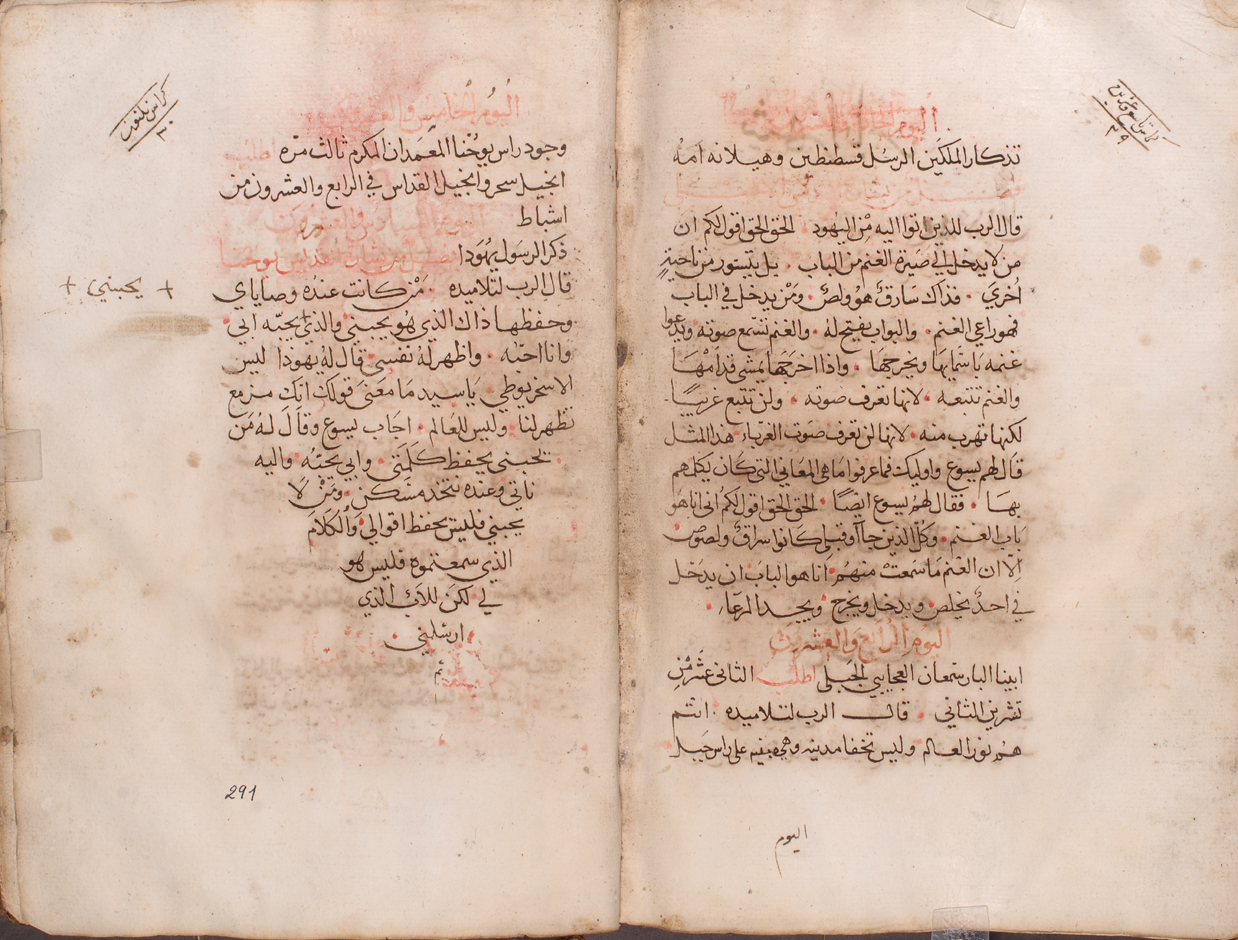 كراس تاسع وعشرين
٢٩
اليوم الحادي والعشرون
تذكار الملكين الرسل قسطنطين وهيلانه امه
فصل من بشارة القديس
قال الرب للذين اتوا اليه من اليهود · الحق الحق اقول لكم ان
من لا يدخل الى صيرة الغنم من الباب · بل يتسور من ناحية
اخرى · فذاك سارق هو ولص · ومن يدخل في الباب
فهو راعي الغنم · والبواب يفتح له · والغنم تسمع صوته ويدعوا
غنمه باسمايها ويخرجها · واذا اخرجها يمشي قدامها
والغنم تتبعه · لانها تعرف صوته · ولن تتبع غريبًا
لكنها تهرب منه · لانها لن تعرف صوت الغرباء هذا المثل
قال لهم يسوع واوليك فما عرفوا ما هي المعاني التي كان يكلمهم
بها · فقال لهم يسوع ايضًا · الحق الحق اقول لكم اني انا هو
باب الغنم · وكل الذين جاآو قبلي كانوا سراق ولصوص
الا ان الغنم ما سمعت منهم · انا هو الباب ان يدخل
في احدٌ يخلص · ويدخل ويخرج · ويجد المرعاء ·
اليوم الرابع والعشرين
ابينا البار سمعان العجايبي الجبلي اطلب الثاني عشر من
تشرين الثاني · قال الرب لتلاميذه · انتم
هم نور العالم وليس تخفا مدينه وهي مبنيه على راس جبل
اليوم
كراس ثلثون
٣٠
اليوم الخامس والعشرون
وجود راس يوحنا المعمدان المكرم ثالث مره اطلب
انجيل سحر وانجيل القداس في الرابع والعشرون من
اشباط
ذكر الرسول يهودا فصل من بشارة القديس يوحنا
قال الرب لتلاميذه · من كانت عنده وصاياي
وحفظها ذاك الذي هو يحبني والذي يحبه ابي ·
وانا احبه · واظهر له نفسي قال له يهودا ليس
الاسخريوطي · يا سيد ما معنى قولك انك مزمع
تظهر لنا · وليس للعالم · اجاب يسوع وقال له من
يحبني يحفظ كلمتي · وابي يحبه · واليه
ناتي وعنده نتخذ مسكن · ومن لا
يحبني فليس يحفظ اقوالي · والكلام
الذي سمعتموه فليس هو
لي · لكن للاب الذي
ارسلني ·
تم
+ يحبني +
291